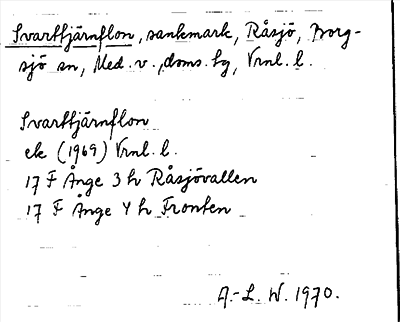 Svarttjärnflon, sankmark, Råsjö, Borg-
sjö sn, Med. v., doms. hg, Vrnl. l.
Svarttjärnflon
ek (1969) Vrnl. l.
17 F Ånge 3 h Råsjövallen
17 F Ånge 4 h Fronten
A.-L. W. 1970.